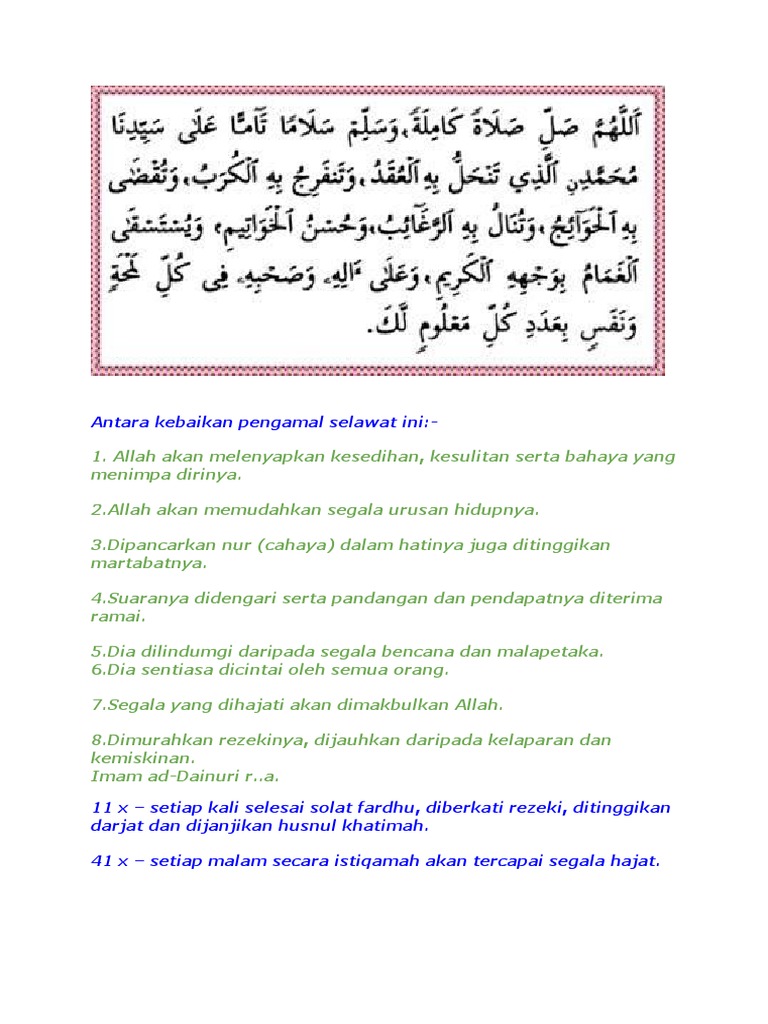 اَللّٰهُمَّ صَلِّ صَلَاةً كَامِلَةً، وَسَلِّمْ سَلَامًا تَآمًّا عَلٰى سَيِّدِنَا
مُحَمَّدِنِ الَّذِي تَنْحَلُّ بِهِ الْعُقَدُ، وَتَنْفَرِجُ بِهِ الْكُرَبُ، وَتُقْضٰى
بِهِ الْحَوَآئِجُ، وَتُنَالُ بِهِ الرَّغَآئِبُ، وَحُسْنُ الْخَوَاتِيمِ، وَيُسْتَسْقٰى
الْغَمَامُ بِوَجْهِهِ الْكَرِيمِ، وَعَلٰى ءَالِهِ وَصَحْبِهِ فِى كُلِّ لَمْحَةٍ
وَنَفَسٍ بِعَدَدِ كُلِّ مَعْلُومٍ لَّكَ.
Antara kebaikan pengamal selawat ini:-
1. Allah akan melenyapkan kesedihan, kesulitan serta bahaya yang
menimpa dirinya.
2.Allah akan memudahkan segala urusan hidupnya.
3.Dipancarkan nur (cahaya) dalam hatinya juga ditinggikan
martabatnya.
4.Suaranya didengari serta pandangan dan pendapatnya diterima
ramai.
5.Dia dilindumgi daripada segala bencana dan malapetaka.
6.Dia sentiasa dicintai oleh semua orang.
7.Segala yang dihajati akan dimakbulkan Allah.
8.Dimurahkan rezekinya, dijauhkan daripada kelaparan dan
kemiskinan.
Imam ad-Dainuri r..a.
11 x – setiap kali selesai solat fardhu, diberkati rezeki, ditinggikan
darjat dan dijanjikan husnul khatimah.
41 x – setiap malam secara istiqamah akan tercapai segala hajat.